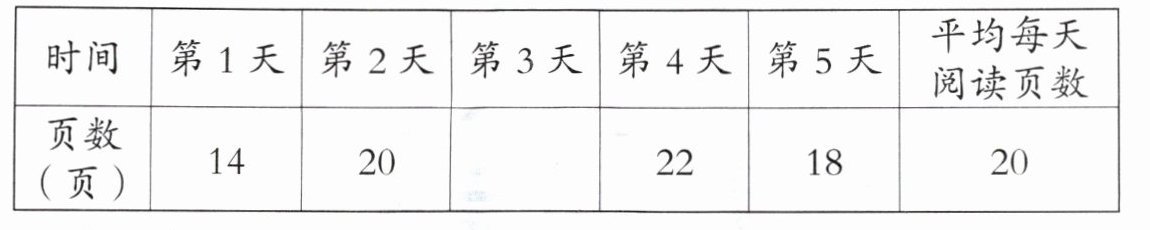 时间 第1天 第2天 第3天 第4天 第5天 平均每天
阅读页数
页数
(页) 14 20 22 18 20